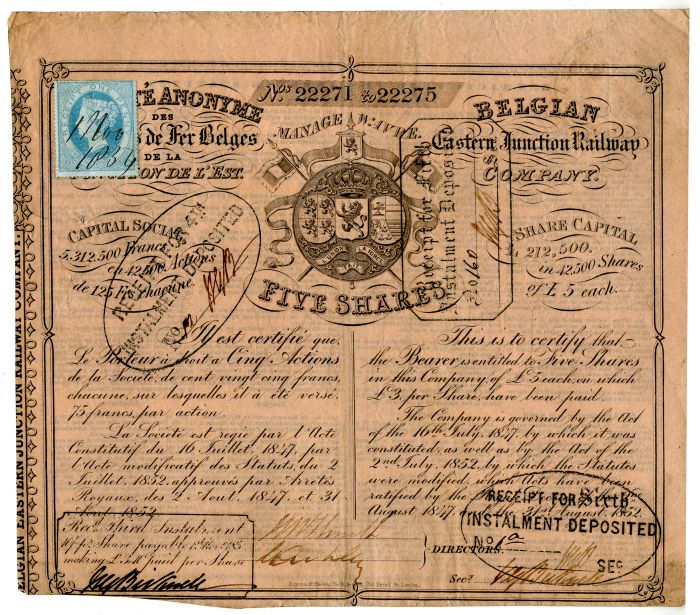 Nos. 22271 to 22275
TÉ ANONYME
DES
de Fer Belges
DE LA
ION DE L'EST.
MANAGE WAVRE.
BELGIAN
Eastern Junction Railway
COMPANY.
RECEIPT ONE
CAPITAL SOCIAL
5,312,500 Francs
en 42,500 Actions
de 125 Frs chacune.
INSTALMENT DEPOSITED
No.
Receipt for Fifth
Instalment Deposited
No. 160
SHARE CAPITAL
£ 212,500.
in 42,500 Shares
of £ 5 each.
FIVE SHARES
Il est certifié que
Le Porteur a droit a Cinq Actions
de la Société, de cent vingt cinq francs,
chacune, sur lesquelles il à été versé
75 francs, par action.
La Société est regie par l'Acte
Constitutif du 16 Juillet, 1847, par
l'Acte modificatif des Statuts, du 2
Juillet, 1852, approuvés par Arretés
Royaux, des 2 Aout, 1847, et 31
Aout, 1852.
This is to certify that
the Bearer is entitled to Five Shares
in this Company, of £ 5 each, on which
£ 3, per Share, have been paid.
The Company is governed by the Act
of the 16th July, 1847, by which it was
constituted, as well as by the Act of the
2nd July, 1852, by which the Statutes
were modified, which Acts have been
ratified by the
August 1847 31st August, 1852.
RECEIPT FOR Sixth
INSTALMENT DEPOSITED
No.
SEC.
Third Instalment
per Share payable
making paid per Share
DIRECTORS.
Secy.
BELGIAN EASTERN JUNCTION RAILWAY COMPANY